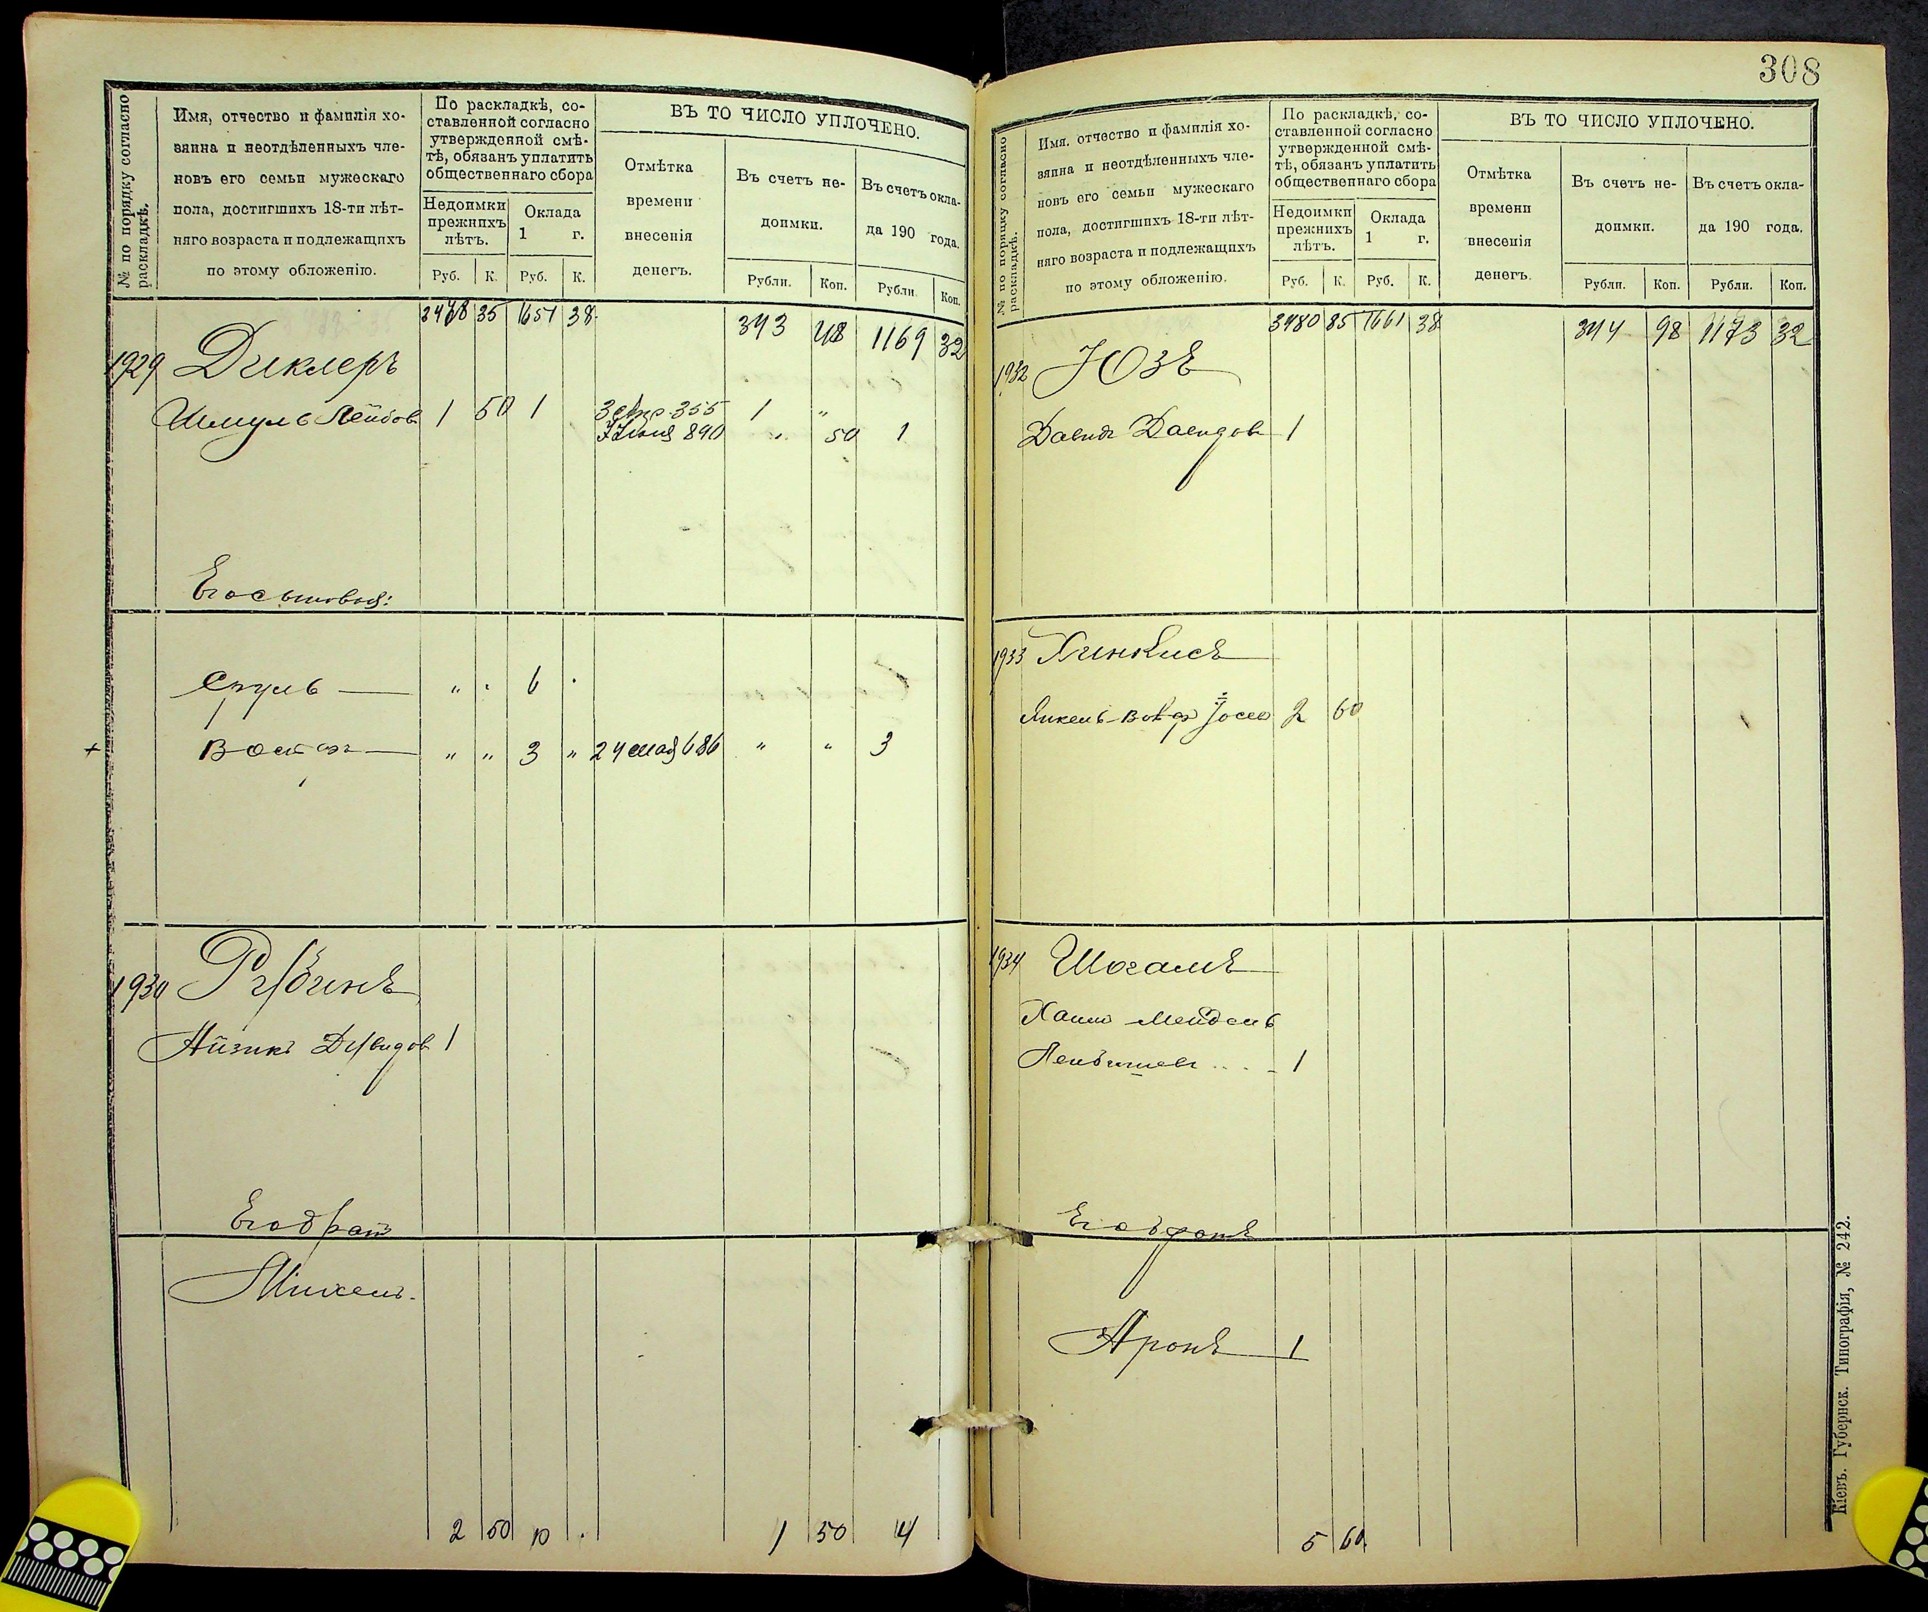 № по порядку согласно раскладкѣ.
Имя, отчество и фамилія хо-
зяина и неотдѣленныхъ чле-
новъ его семьи мужескаго
пола, достигшихъ 18-ти лѣт-
няго возраста и подлежащихъ
по этому обложенію.
По раскладкѣ, со-
ставленной согласно
утвержденной смѣ-
тѣ, обязанъ уплатить
общественнаго сбора
Недоимки
прежнихъ
лѣтъ.
Оклада
1 г.
Руб. К. Руб. К.
ВЪ ТО ЧИСЛО УПЛОЧЕНО.
Отмѣтка
времени
внесенія
денегъ.
Въ счетъ не-
доимки.
Въ счетъ окла-
да 190 года.
Рубли. Коп. Рубли. Коп.
2478 35 1651 38 343 48 1169 32
1929 Диклеръ
Шмуль Лейбов 1 50 1 355 1 "
890 " 50 1
Его сыновья:
Сруль " " 6 "
+ Вольф " " 3 " 24 мая 686 " " 3
1930 Рубинъ
Айзикъ Давидов 1
Его братъ
Михель
2 50 10 . 1 50 4
308
№ по порядку согласно раскладкѣ.
Имя, отчество и фамилія хо-
зяина и неотдѣленныхъ чле-
новъ его семьи мужескаго
пола, достигшихъ 18-ти лѣт-
няго возраста и подлежащихъ
по этому обложенію.
По раскладкѣ, со-
ставленной согласно
утвержденной смѣ-
тѣ, обязанъ уплатить
общественнаго сбора
Недоимки
прежнихъ
лѣтъ.
Оклада
1 г.
Руб. К. Руб. К.
ВЪ ТО ЧИСЛО УПЛОЧЕНО.
Отмѣтка
времени
внесенія
денегъ.
Въ счетъ не-
доимки.
Въ счетъ окла-
да 190 года.
Рубли. Коп. Рубли. Коп.
3480 85 1661 38 344 98 1173 32
1932 Юзъ
Давидъ Давидов 1
1933 Хинкисъ
Янкель-Вольф 2 60
1934 Шогамъ
Хаимъ Мендель
1
Его братъ
Аронъ 1
5 60
Кіевъ. Губернск. Типографія, № 242.